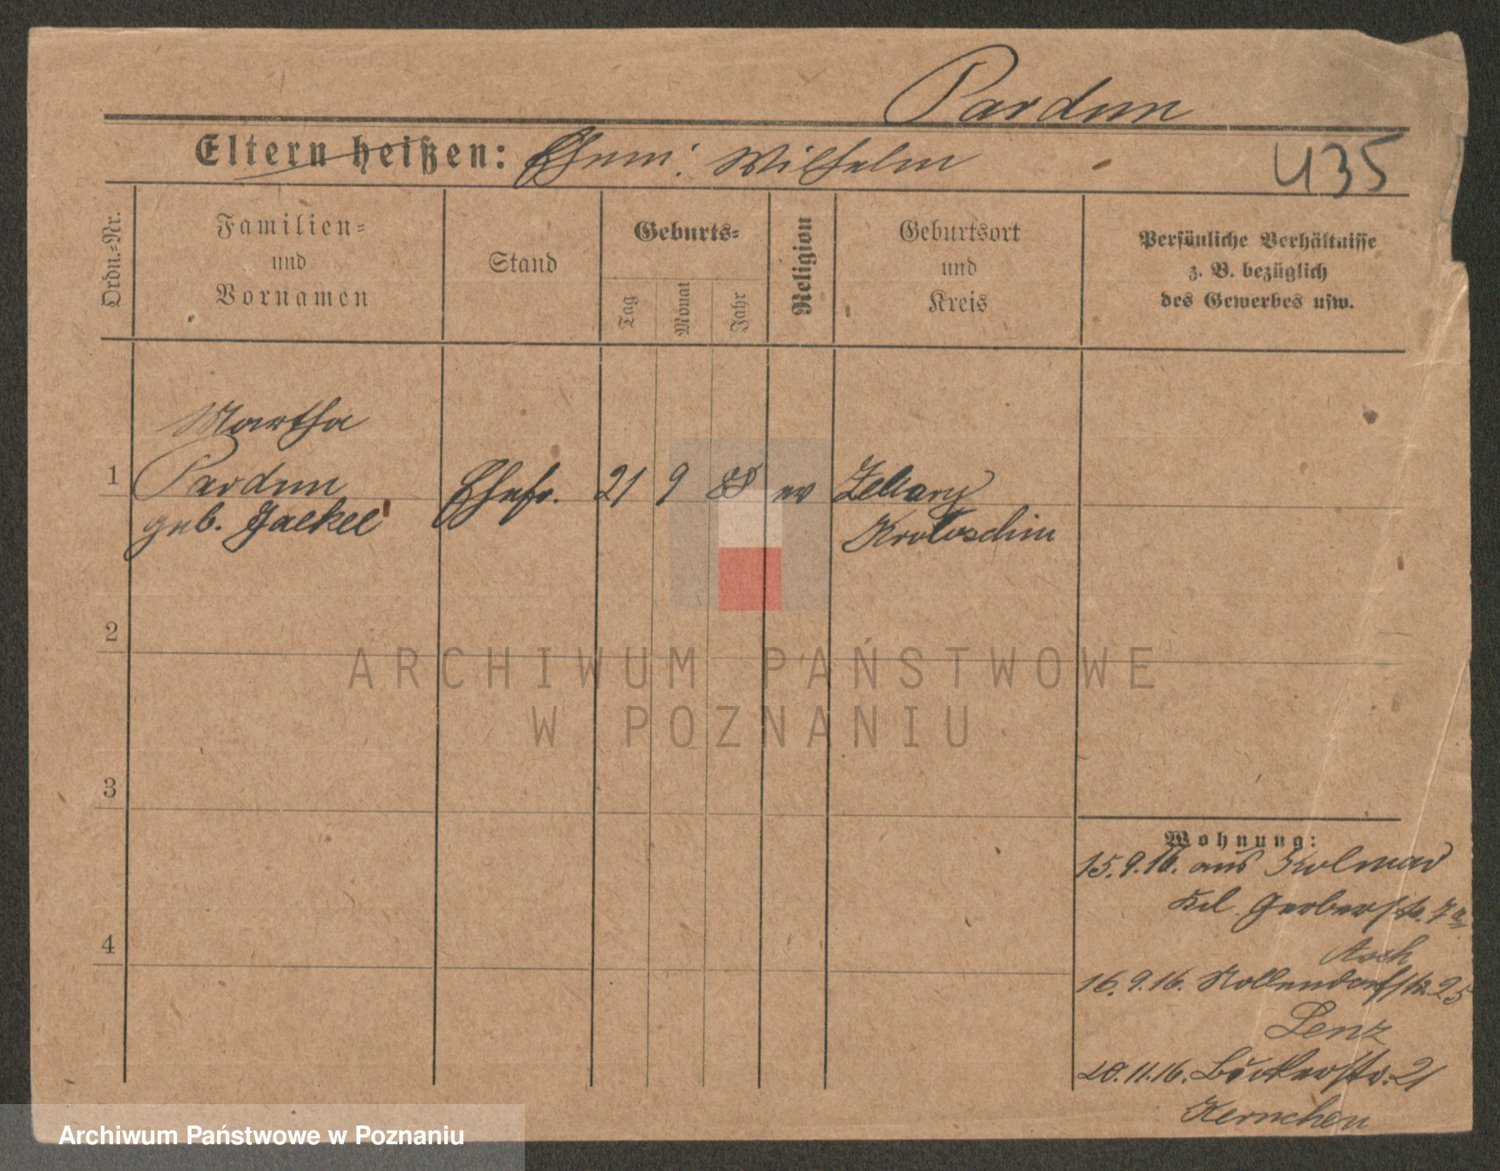 Pardun
Eltern heißen: Ehem: Wilhelm
435
Ordn.-Nr.
Familien-
und
Vornamen
Stand
Geburts-
Tag
Monat
Jahr
Religion
Geburtsort
und
Kreis
Persönliche Verhältnisse
z. B. bezüglich
des Gewerbes usw.
Martha
1 Pardun Ehefr. 21 9 88 ev
geb. Jaekel
Krotoschin
2
3
4
Wohnung:
15.9.16. aus Kolmar
Gerberstr. 7a
Asch
16.9.16. Nollendorfstr. 25
Lenz
20.11.16. Bäckerstr. 21
Kernchen
ARCHIWUM PAŃSTWOWE
W POZNANIU
Archiwum Państwowe w Poznaniu